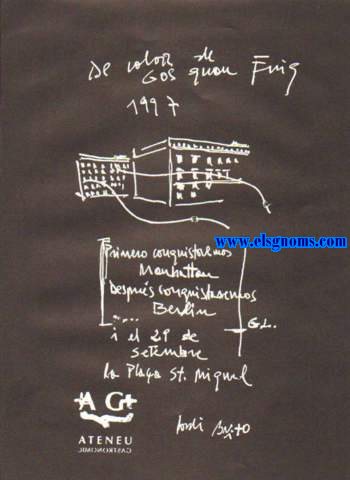 De color de
GOS quan Fuig
1997
www.elsgnoms.com
Primero conquistaremos
Manhattan
Después conquistaremos
Berlin
.....
G.L.
i el 29 de
setembre
la Plaça St. Miquel
A G
ATENEU
GASTRONOMIC
Jordi